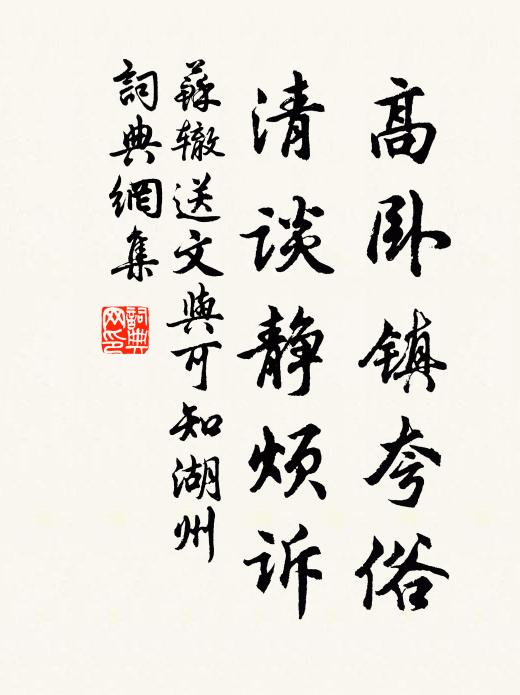 高卧镇夸俗
清谈静烦诉
蘇辙送文與可知湖州
詞典網集
詞典网印